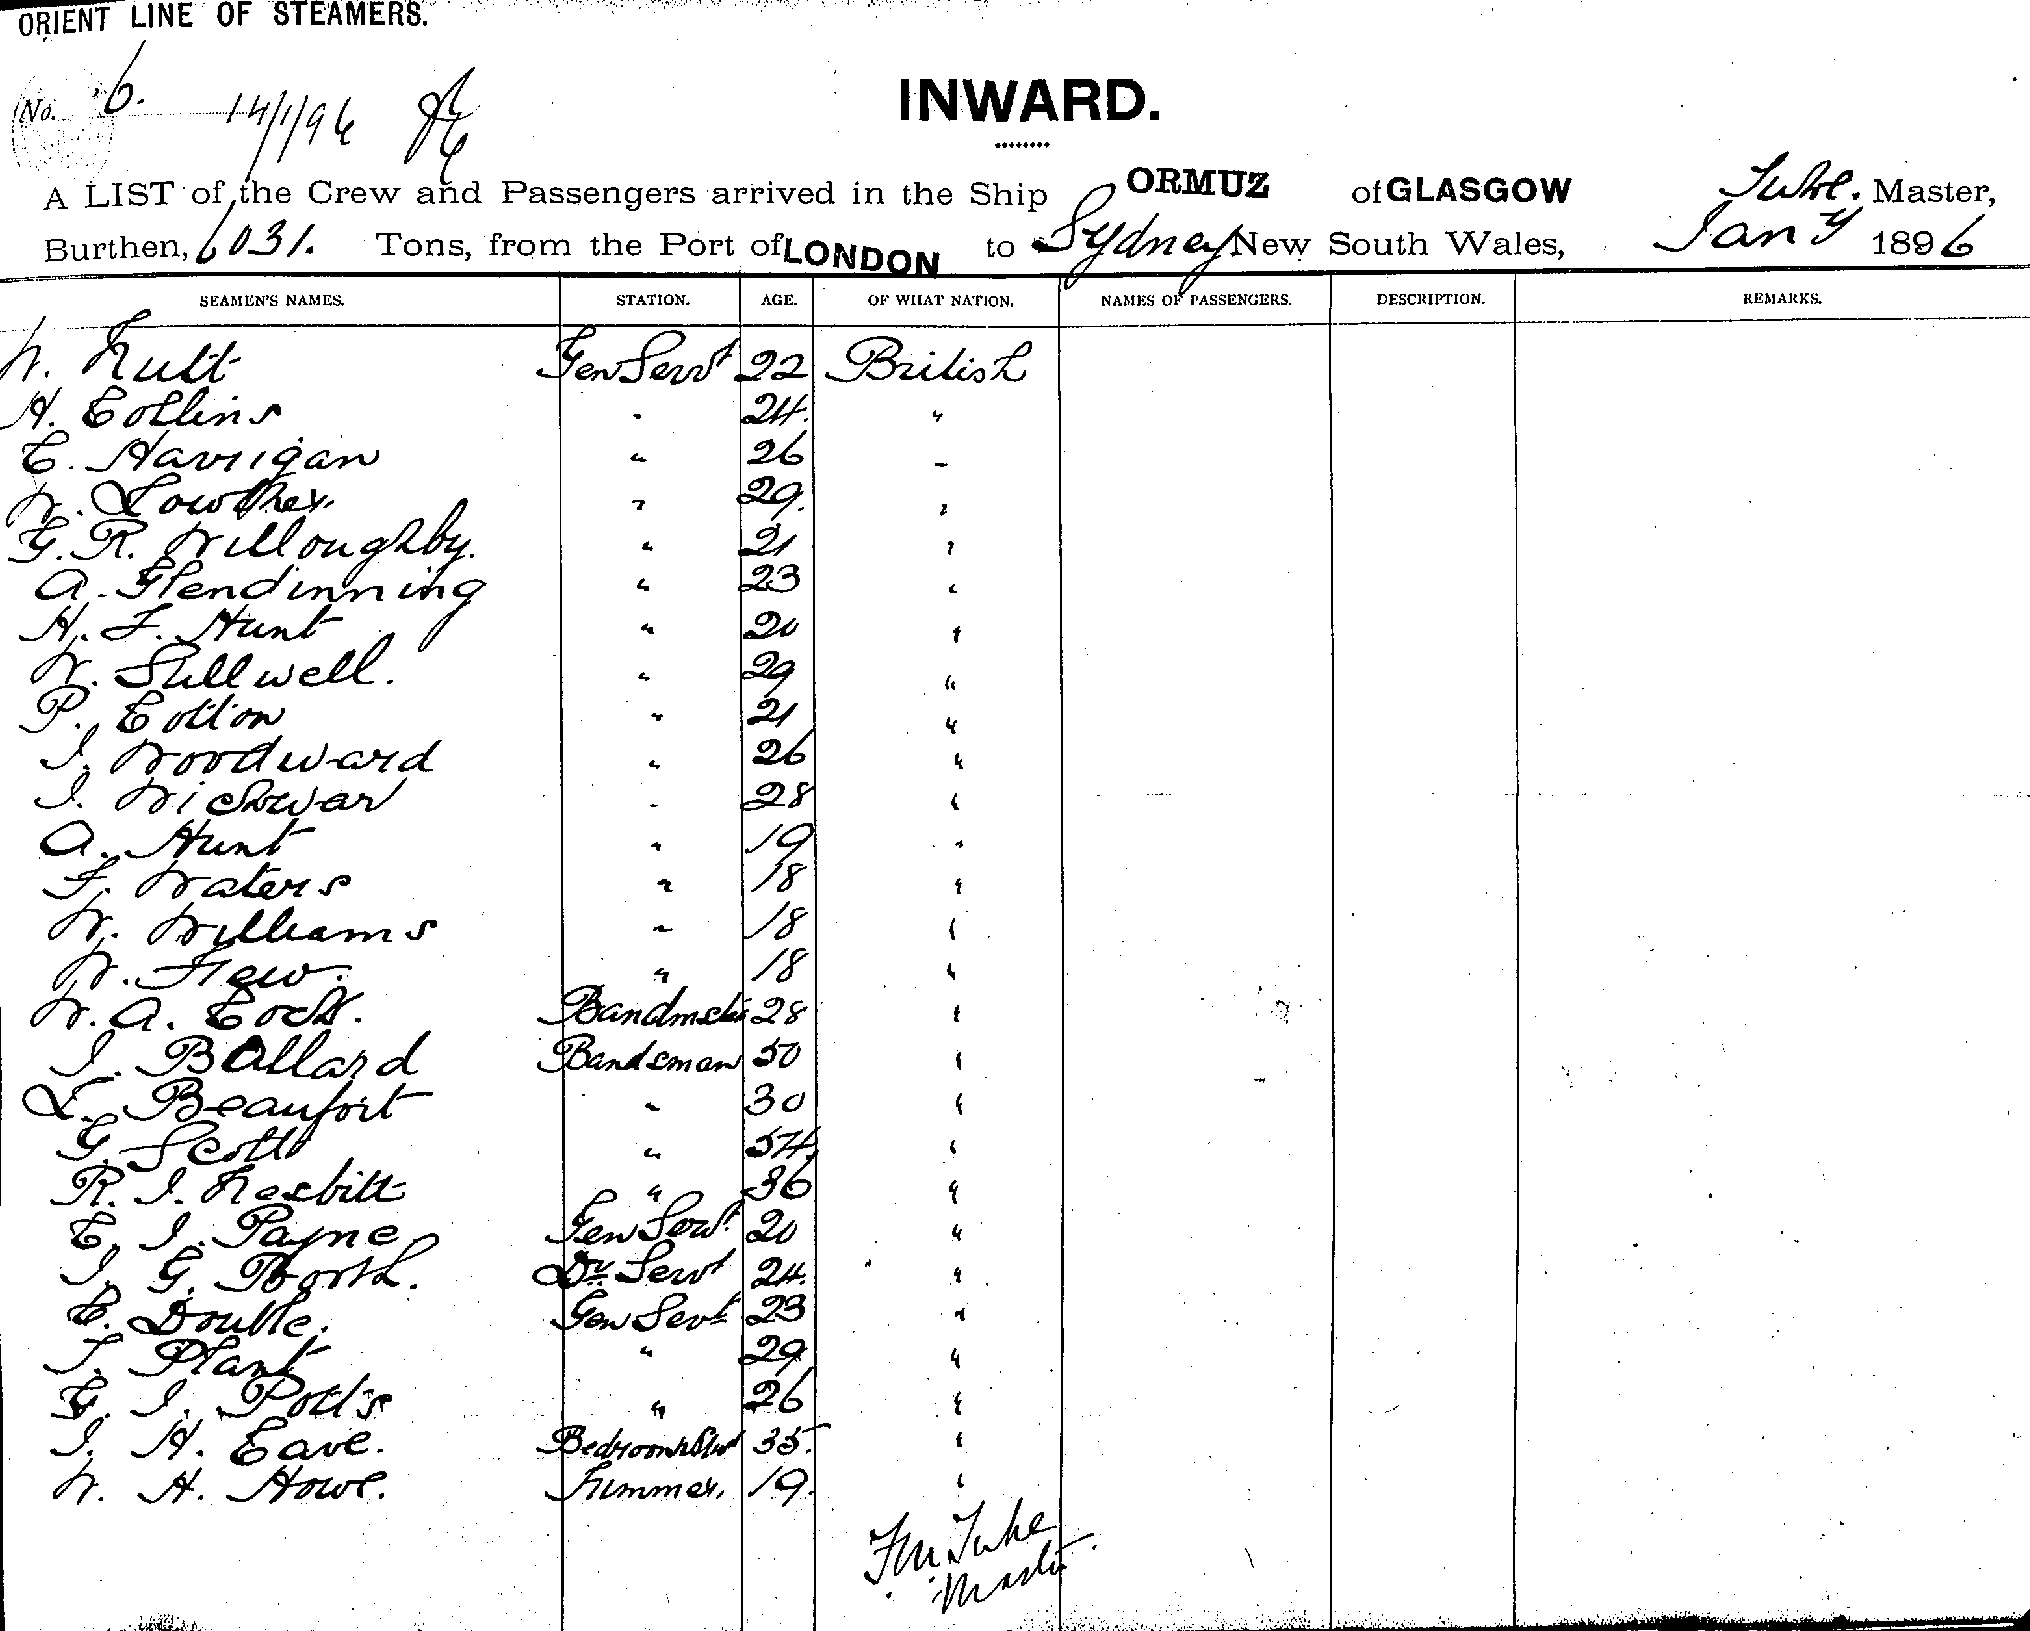 ORIENT LINE OF STEAMERS.
No. 6. 14/1/96
INWARD.
A LIST of the Crew and Passengers arrived in the Ship ORMUZ of GLASGOW Tuke. Master,
Burthen, 6031. Tons, from the Port of LONDON to Sydney New South Wales, Jany 1896
SEAMEN'S NAMES. STATION. AGE. OF WHAT NATION. NAMES OF PASSENGERS. DESCRIPTION. REMARKS.
W. Nutt Gen Servt 22 British
H. Collins " 24. "
C. Harrigan " 26 "
W. Lowther. " 29. "
G. R. Willoughby. " 21 "
A. Glendinning " 23 "
H. F. Hunt " 20 "
W. Stillwell. " 29 "
P. Cotton " 21 "
J. Woodward " 26 "
J. Wickwar " 28 "
A. Hunt " 19 "
F. Waters " 18 "
W. Williams " 18 "
W. Flew. " 18 "
W. A. Cock. Bandmstr 28 "
J. Ballard Bandsman 50 "
L. Beaufort " 30 "
G. Scott " 54. "
R. J. Nesbitt " 36 "
C. J. Payne Gen Servt. 20 "
J. G. Borth. Dr Servt 24. "
C. Double. Gen Servt 23 "
T. Plant " 29 "
G. J. Potts " 26 "
J. H. Cave. Bedroom Stwd 35. "
W. H. Howe. Trimmer. 19. "
Tuke
Master